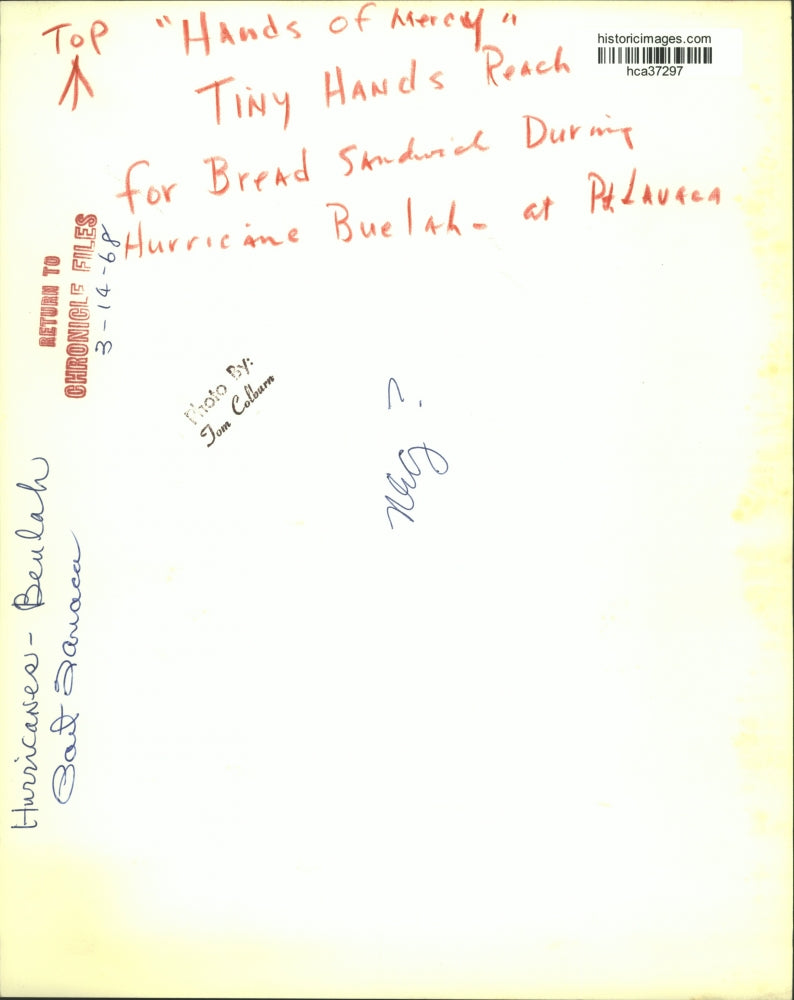 historicimages.com
hca37297
TOP "Hands of Mercy"
TINY HANDS Reach
for Bread Sandwich During
Hurricane Buelah - at Pt LAVACA
RETURN TO
CHRONICLE FILES
3-14-68
Photo By:
Tom Colburn
?
Hurricanes - Beulah
Port Lavaca